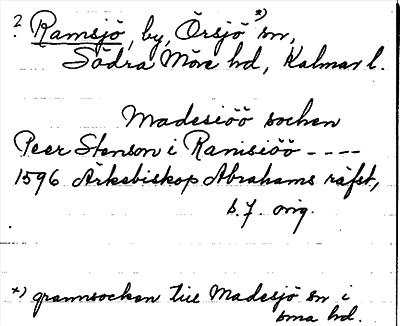 ? Ramsjö, by, Örsjö *) sn,
Södra Möre hd, Kalmar l.
Madesiöö sochen
Peer Stenson i Ramsiöö ----
1596 Ärkebiskop Abrahams räfst,
s. 7. orig.
*) grannsocken till Madesjö sn i
sma hd.